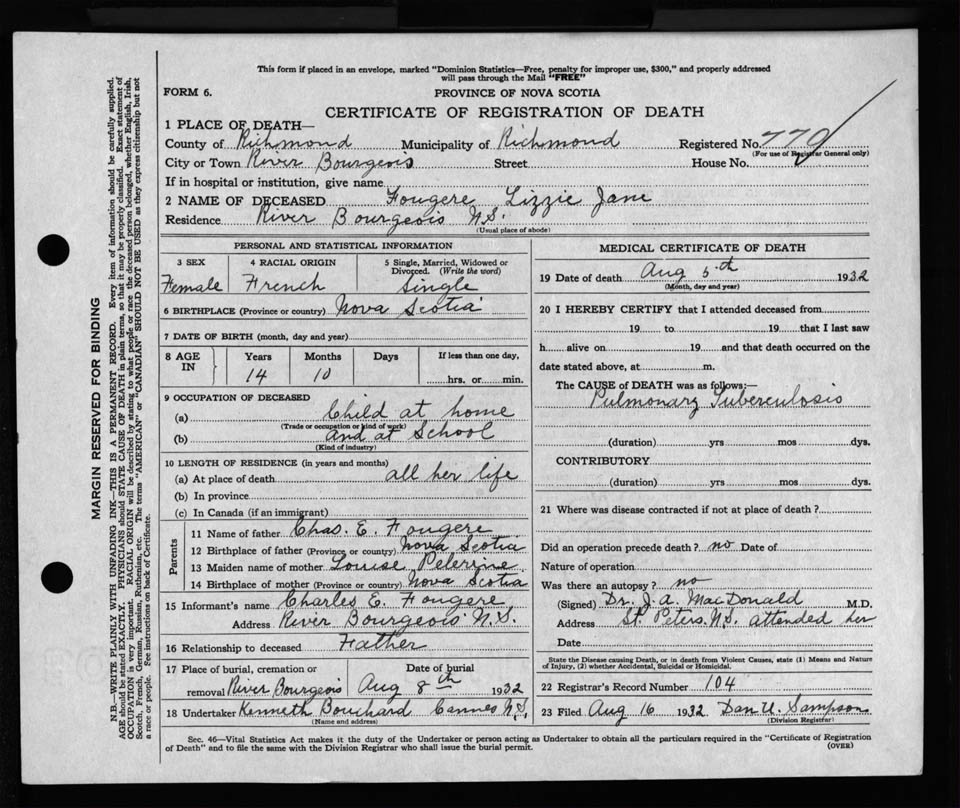 This form if placed in an envelope, marked "Dominion Statistics—Free, penalty for improper use, $300," and properly addressed
will pass through the Mail "FREE"
FORM 6.
PROVINCE OF NOVA SCOTIA
CERTIFICATE OF REGISTRATION OF DEATH
1 PLACE OF DEATH—
County of Richmond Municipality of Richmond Registered No. 779
(For use of Registrar General only)
City or Town River Bourgeois Street House No.
If in hospital or institution, give name
2 NAME OF DECEASED Fougere Lizzie Jane
Residence River Bourgeois N.S.
(Usual place of abode)
PERSONAL AND STATISTICAL INFORMATION
3 SEX 4 RACIAL ORIGIN 5 Single, Married, Widowed or
Divorced. (Write the word)
Female French Single
6 BIRTHPLACE (Province or country) Nova Scotia
7 DATE OF BIRTH (month, day and year)
8 AGE IN Years Months Days If less than one day,
14 10 hrs. or min.
9 OCCUPATION OF DECEASED
(a) Child at home
(Trade or occupation or kind of work)
(b) and at School
(Kind of industry)
10 LENGTH OF RESIDENCE (in years and months)
(a) At place of death all her life
(b) In province
(c) In Canada (if an immigrant)
Parents
11 Name of father Chas. E. Fougere
12 Birthplace of father (Province or country) Nova Scotia
13 Maiden name of mother Louise Pelerine
14 Birthplace of mother (Province or country) Nova Scotia
15 Informant's name Charles E. Fougere
Address River Bourgeois N.S.
16 Relationship to deceased Father
17 Place of burial, cremation or Date of burial
removal River Bourgeois Aug 8th 1932
18 Undertaker Kenneth Bouchard Cannes N.S.
(Name and address)
MEDICAL CERTIFICATE OF DEATH
19 Date of death Aug 5th 1932
(Month, day and year)
20 I HEREBY CERTIFY that I attended deceased from
19 to 19 that I last saw
h alive on 19 and that death occurred on the
date stated above, at m.
The CAUSE of DEATH was as follows:—
Pulmonary Tuberculosis
(duration) yrs mos dys.
CONTRIBUTORY
(duration) yrs mos dys.
21 Where was disease contracted if not at place of death?
Did an operation precede death? no Date of
Nature of operation
Was there an autopsy? no
(Signed) Dr. J. A. MacDonald M.D.
Address St. Peters N.S. attended her
Date
State the Disease causing Death, or in death from Violent Causes, state (1) Means and Nature
of Injury, (2) whether Accidental, Suicidal or Homicidal.
22 Registrar's Record Number 104
23 Filed Aug 16 1932 Dan U. Sampson
(Division Registrar)
Sec. 46—Vital Statistics Act makes it the duty of the Undertaker or person acting as Undertaker to obtain all the particulars required in the "Certificate of Registration
of Death" and to file the same with the Division Registrar who shall issue the burial permit. (OVER)
MARGIN RESERVED FOR BINDING
N.B.—WRITE PLAINLY WITH UNFADING INK—THIS IS A PERMANENT RECORD. Every item of information should be carefully supplied.
AGE should be stated EXACTLY. PHYSICIANS should STATE CAUSE OF DEATH in plain terms, so that it may be properly classified. Exact statement of
OCCUPATION is very important. RACIAL ORIGIN will be described by stating to what people or race the deceased person belonged, whether English, Irish,
Scotch, French, German, Russian, Ruthenian, etc. The terms "AMERICAN" or "CANADIAN" SHOULD NOT BE USED as they express citizenship but not
a race or people. Fee instructions on back of Certificate.